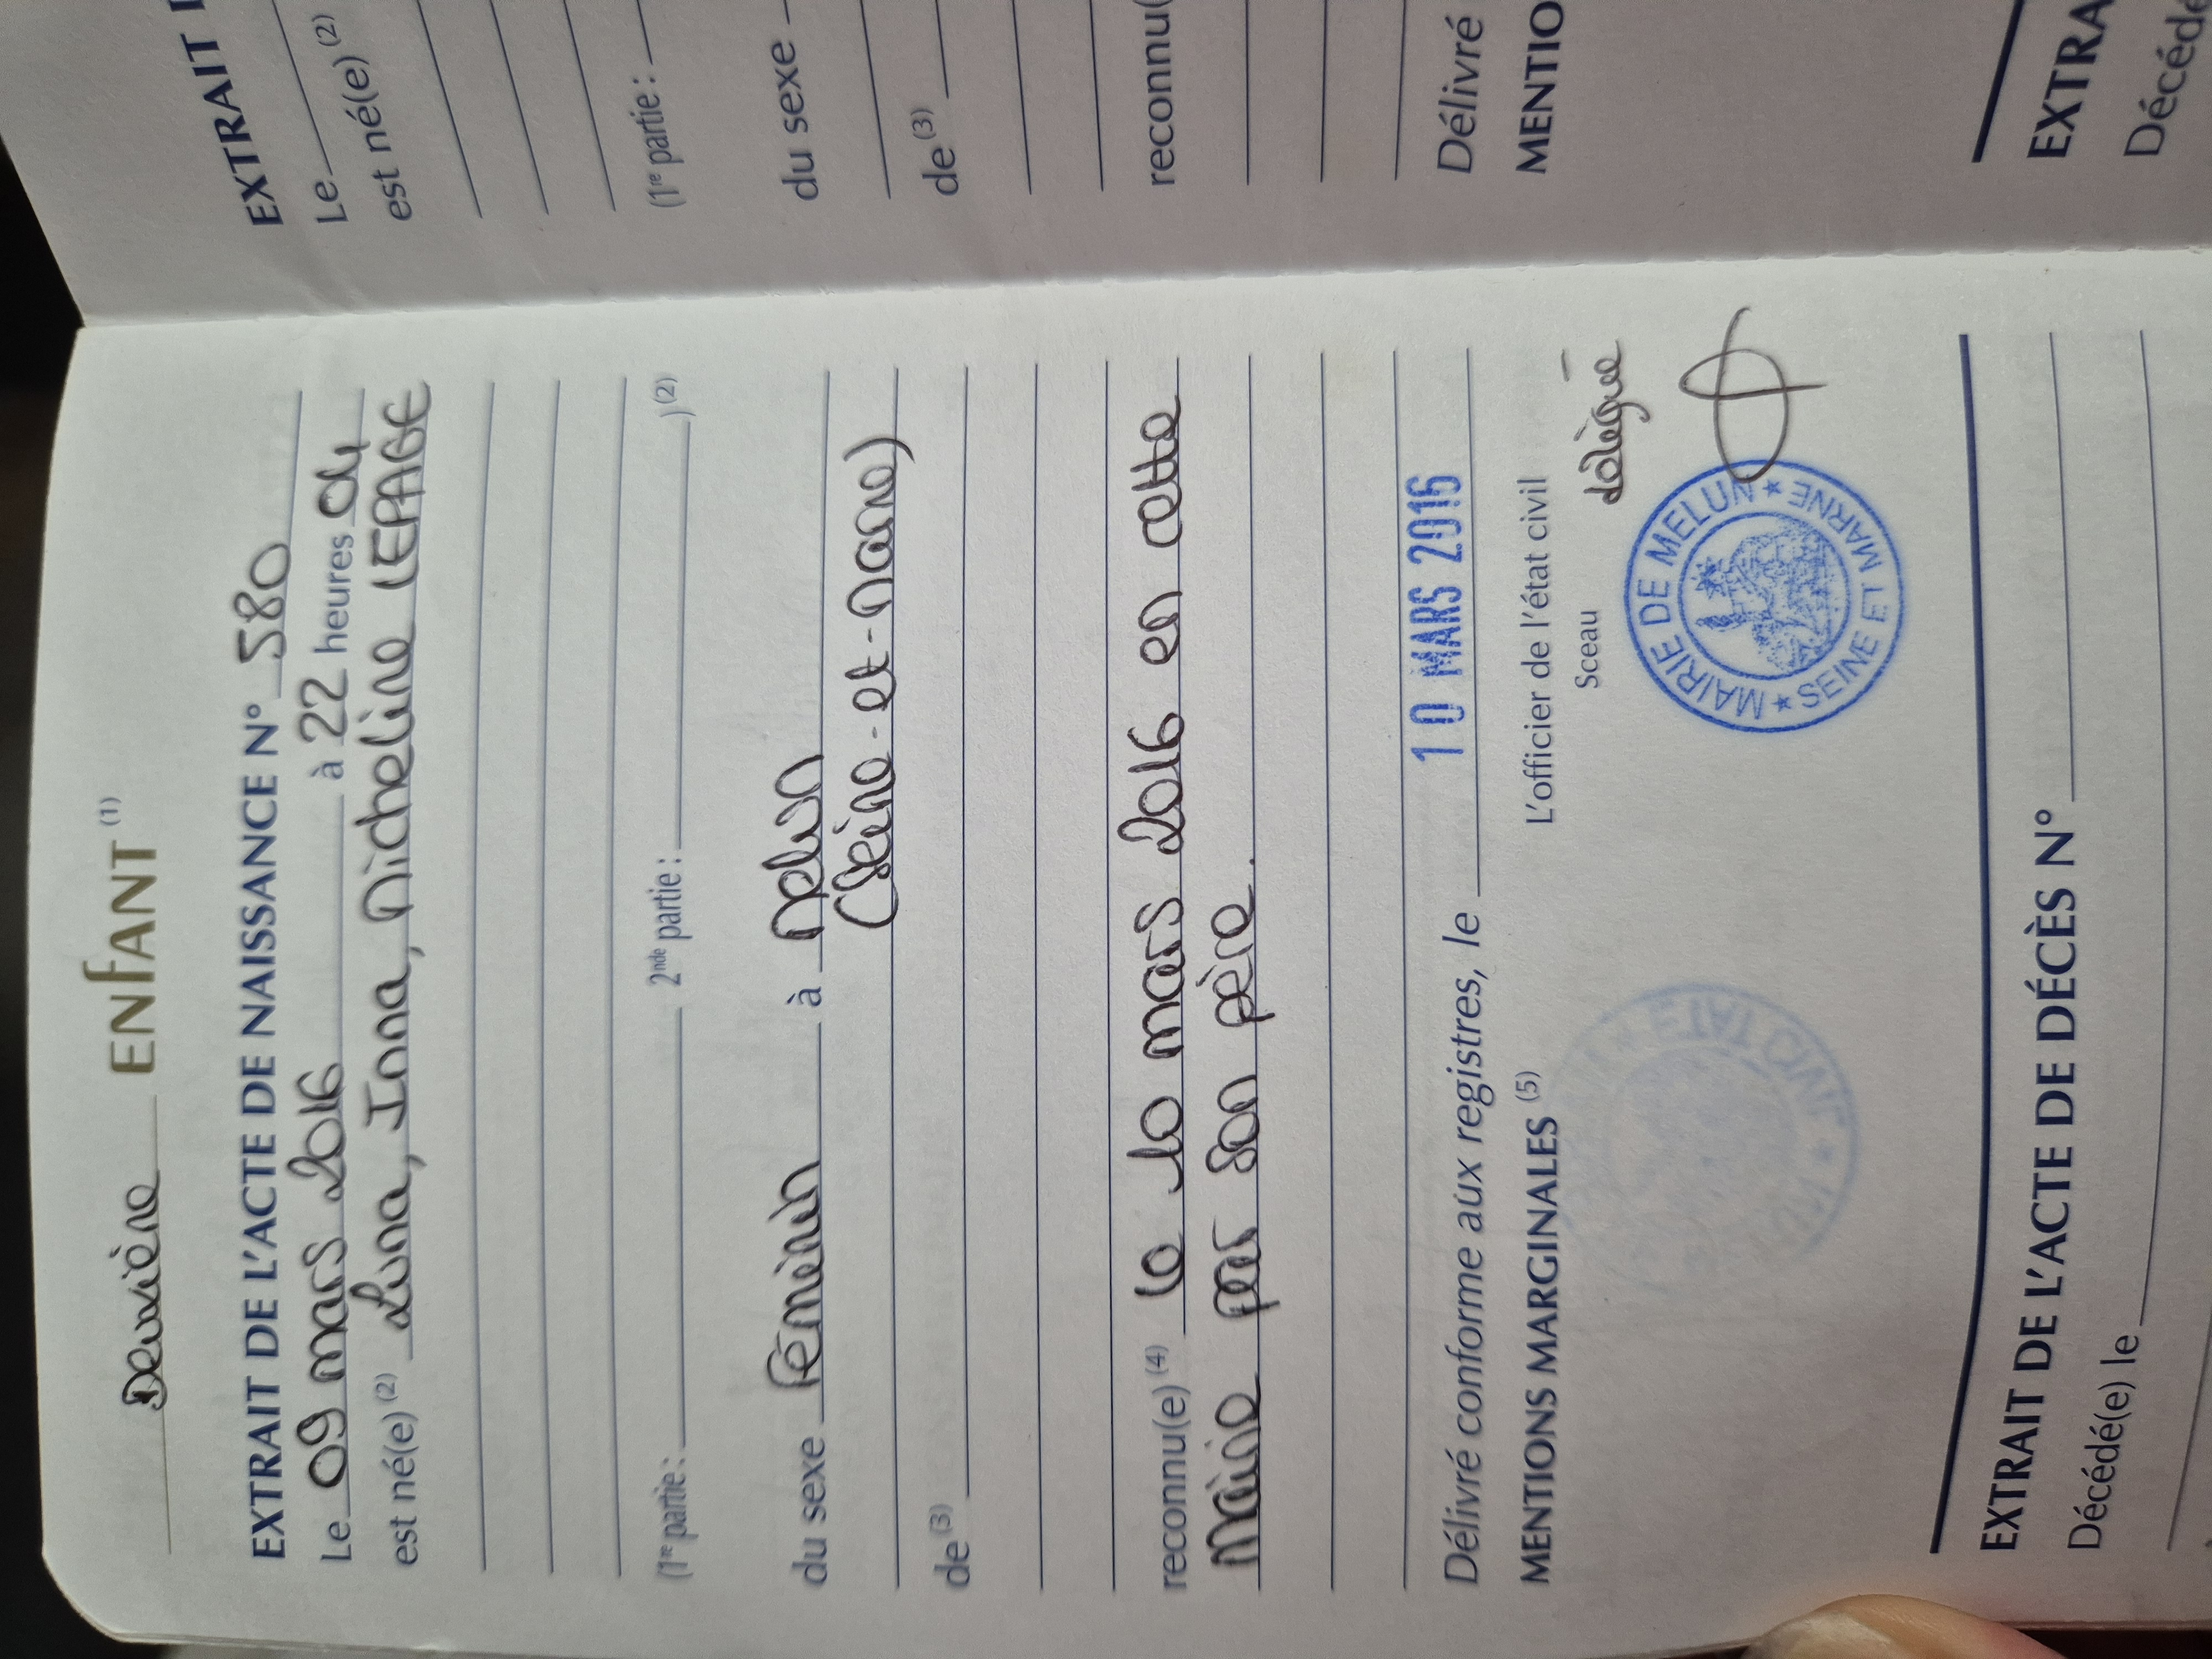 Deuxième ENFANT (1)
EXTRAIT DE L'ACTE DE NAISSANCE N° 580
Le 09 mars 2016 à 22 heures 04
est né(e) (2) Luna, Inna, Micheline LEPAGE
(1re partie : 2nde partie : ) (2)
du sexe Féminin à Melun
(Seine-et-Marne)
de (3)
reconnu(e) (4) le 10 mars 2016 en cette
Mairie par son père.
Délivré conforme aux registres, le 10 MARS 2016
L'officier de l'état civil
délégué
Sceau
MENTIONS MARGINALES (5)
MAIRIE DE MELUN
SEINE ET MARNE
ETAT CIVIL
EXTRAIT DE L'ACTE DE DÉCÈS N°
Décédé(e) le
EXTRAIT
Le (2)
est né(e) (2)
(1re partie :
du sexe
de (3)
reconnu(
Délivré
MENTIO
EXTRA
Décéd